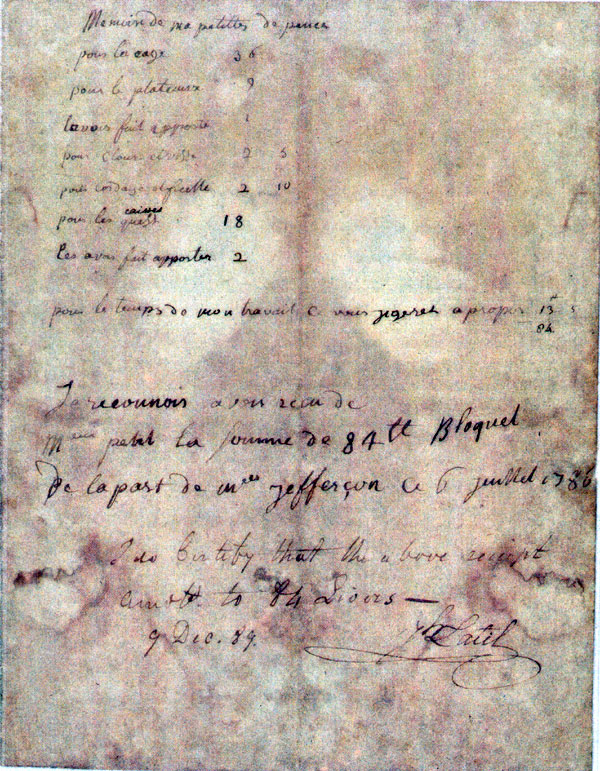 Memoire de ma petittes de pence
pour la cage 36
pour le plateaux 9
lavoir fait apporté 1
pour clous et viss 2 5
pour cordage et ficelle 2 10
pour les caises 18
Les avoir fait apporter 2
pour le temps de mon travail ce vous jigeres a propos 13 5
84
Je reconnois avoir recu de
Mr petit la somme de 84tt Bloquel
De la part de mr jefferçon ce 6 juillet 1786
I do Certify that the above receipt
amott. to 84 Livers —
9 Dec. 89.